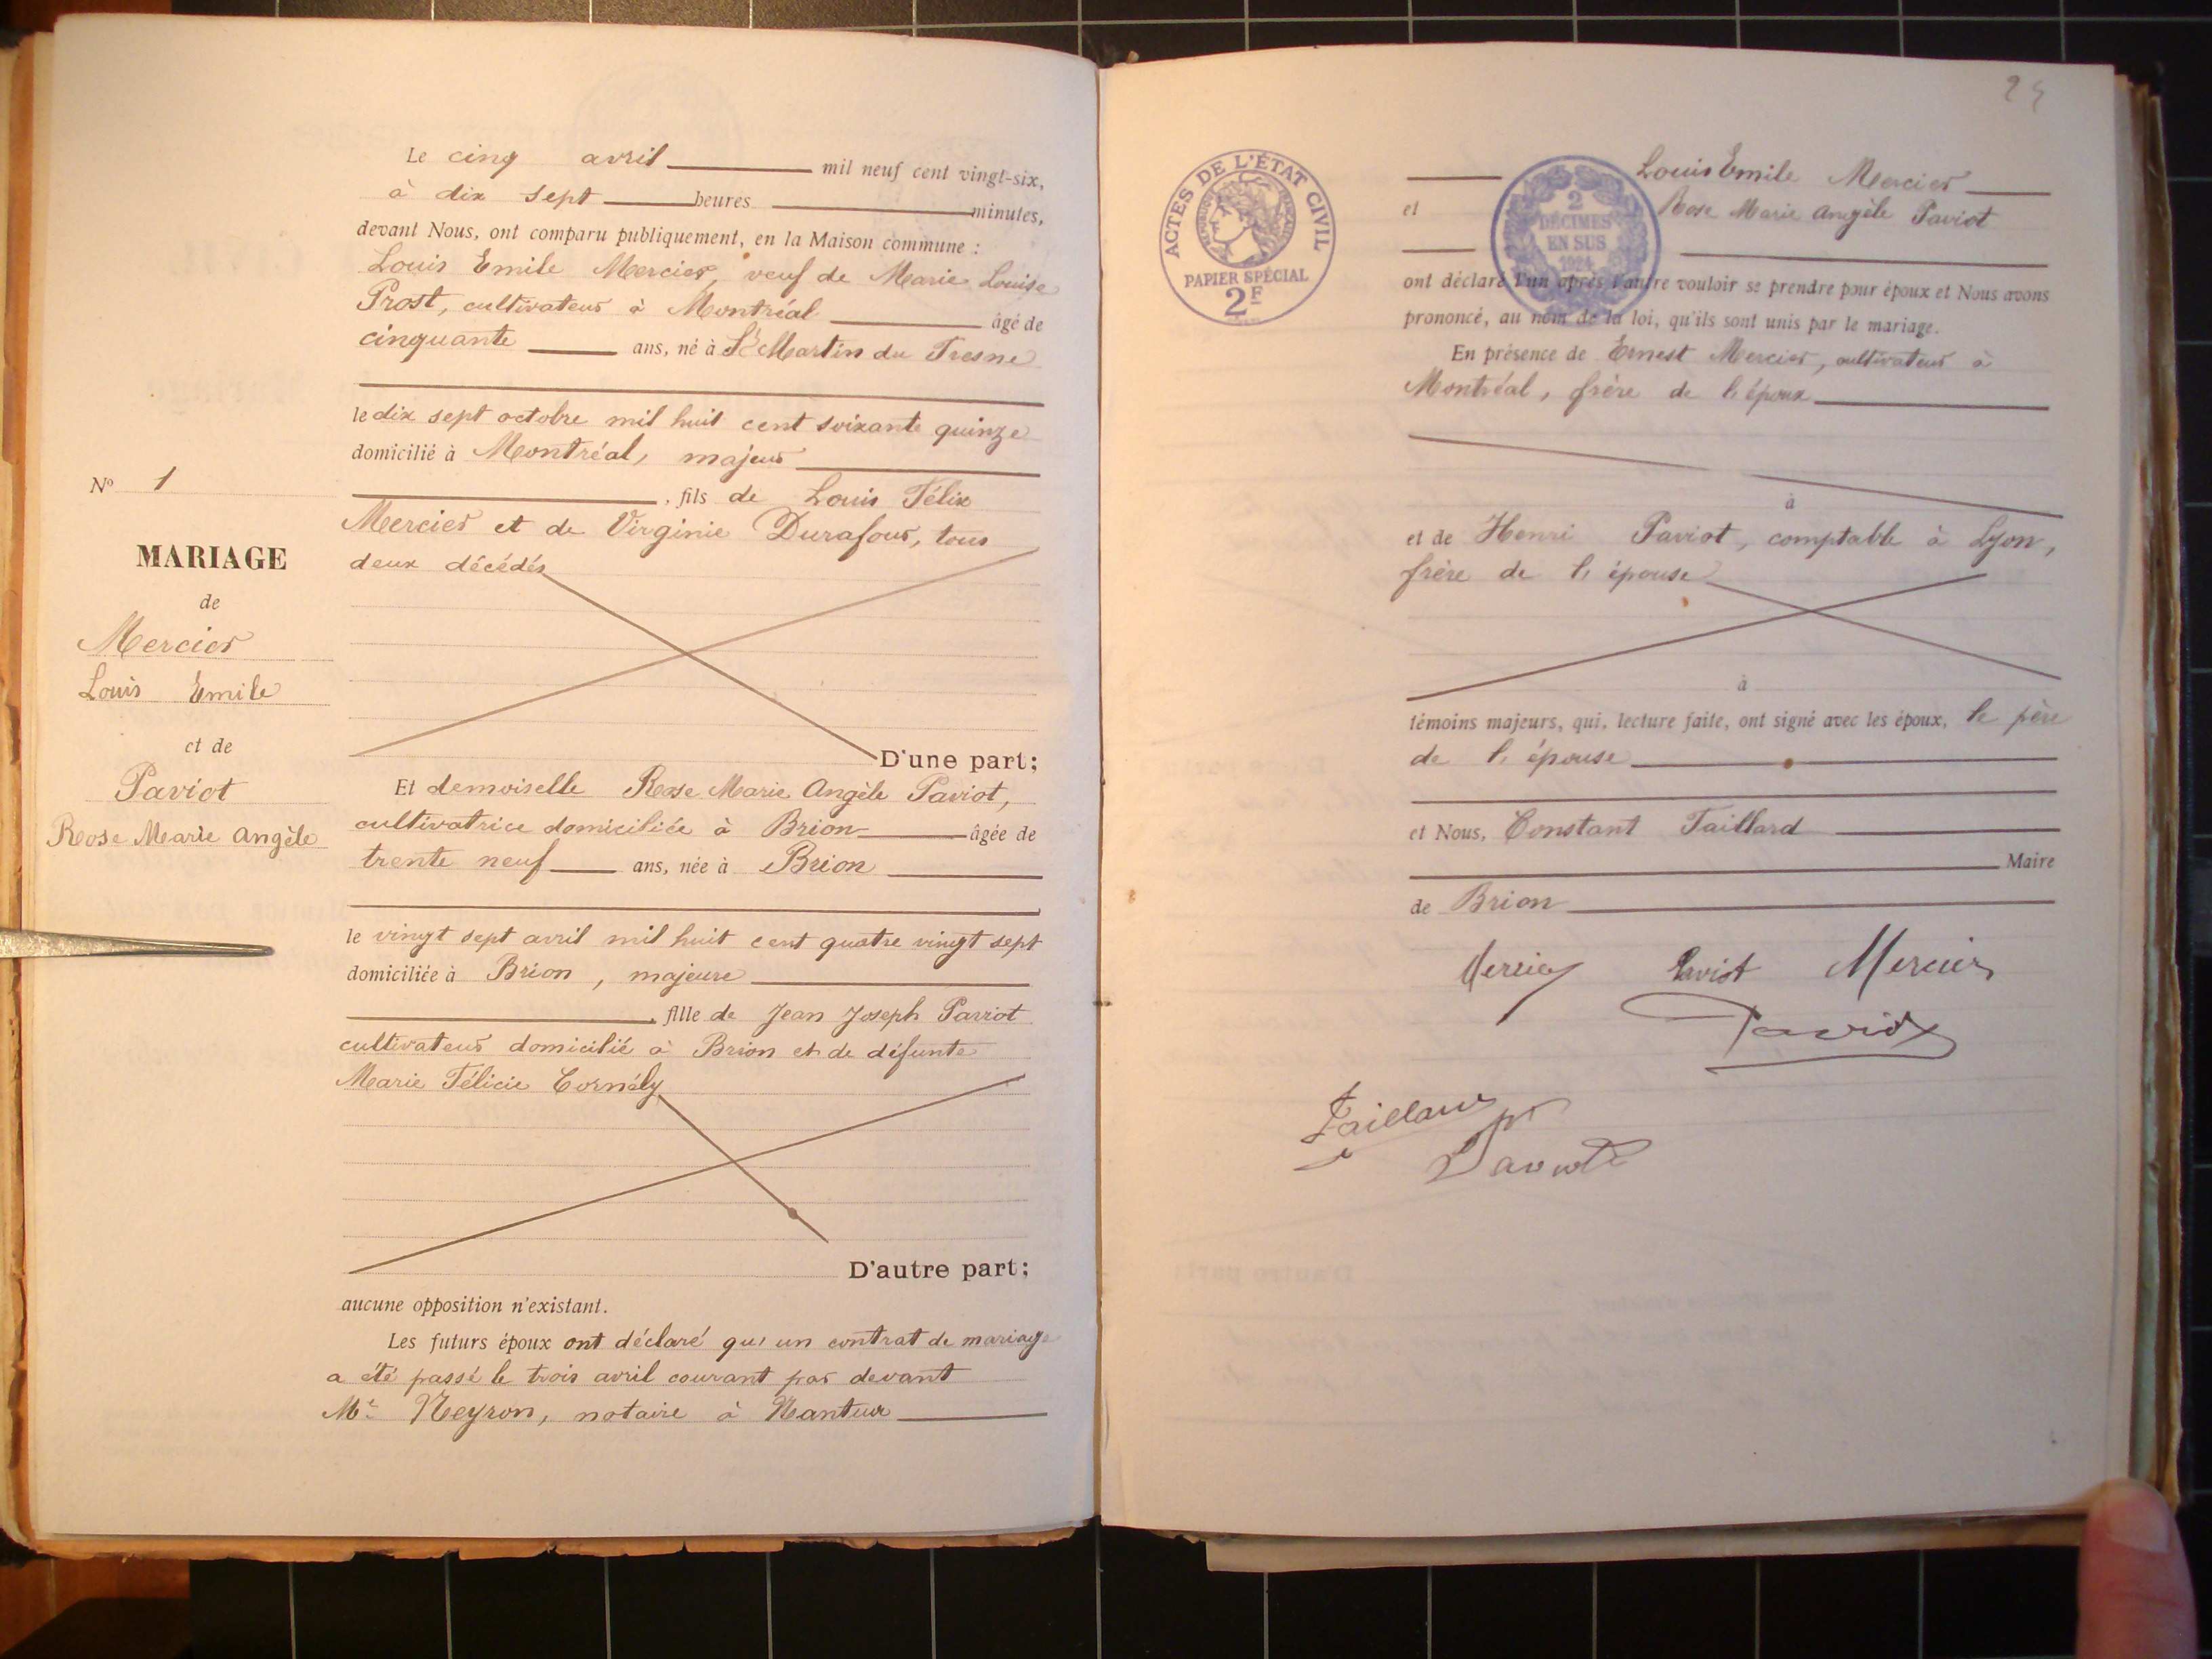 Le cinq avril mil neuf cent vingt-six,
à dix sept heures minutes,
devant Nous, ont comparu publiquement, en la Maison commune :
Louis Emile Mercier, veuf de Marie Louise
Prost, cultivateur à Montréal âgé de
cinquante ans, né à St Martin du Fresne
le dix sept octobre mil huit cent soixante quinze
domicilié à Montréal, majeur
, fils de Louis Félix
Mercier et de Virginie Durafour, tous
deux décédés
D'une part;
No 1
MARIAGE
de
Mercier
Louis Emile
et de
Paviot
Rose Marie Angèle
Et demoiselle Rose Marie Angèle Paviot,
cultivatrice domiciliée à Brion âgée de
trente neuf ans, née à Brion
le vingt sept avril mil huit cent quatre vingt sept
domiciliée à Brion, majeure
, fille de Jean Joseph Paviot
cultivateur domicilié à Brion et de défunte
Marie Félicie Cornély
D'autre part;
aucune opposition n'existant.
Les futurs époux ont déclaré qu'un contrat de mariage
a été passé le trois avril courant par devant
Me Neyron, notaire à Nantua
ACTES DE L'ÉTAT CIVIL
PAPIER SPÉCIAL
2F
2
DÉCIMES
EN SUS
1924
Louis Emile Mercier
et Rose Marie Angèle Paviot
ont déclaré l'un après l'autre vouloir se prendre pour époux et Nous avons
prononcé, au nom de la loi, qu'ils sont unis par le mariage.
En présence de Ernest Mercier, cultivateur à
Montréal, frère de l'époux
à
et de Henri Paviot, comptable à Lyon,
frère de l'épouse
à
témoins majeurs, qui, lecture faite, ont signé avec les époux, le père
de l'épouse
et Nous, Constant Taillard
Maire
de Brion
Mercier Paviot Mercier
Paviot
Taillard
Paviot